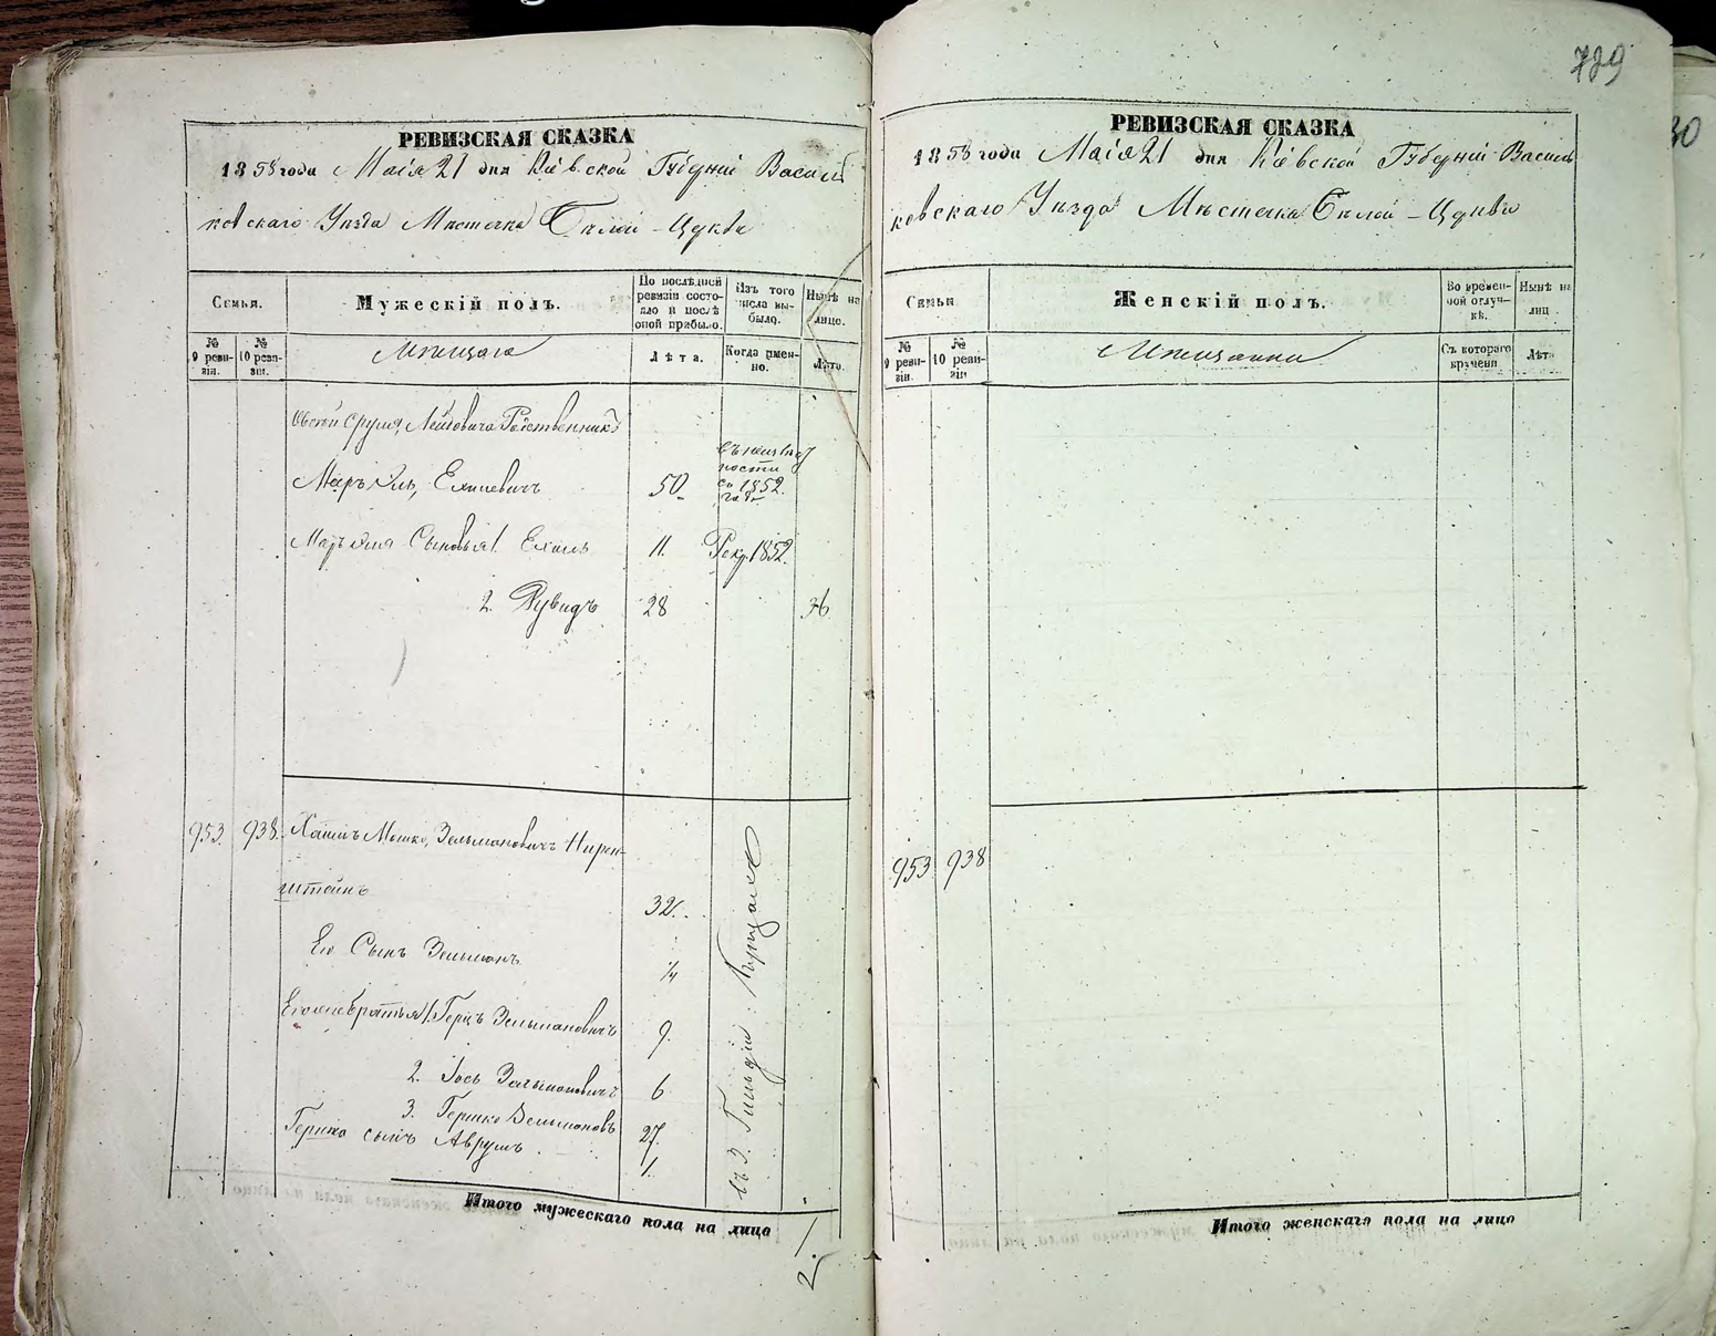 729
30
РЕВИЗСКАЯ СКАЗКА
1858 года Маія 21 дня Кіевской Губерніи Василь
ковскаго Уѣзда Мѣстечка Бѣлой-Церкви
Семья.
Мужескій полъ.
По послѣдней ревизіи состояло и послѣ оной прибыло.
Изъ того числа выбыло.
Нынѣ на лицо.
№ 9 ревизіи.
№ 10 ревизіи.
Мѣщане
Лѣта.
Когда именно.
Лѣта.
Лейбовича Родственникъ
50
съ 1852 года
Сыновья 1.
11.
Рекр. 1852.
2. Рувидъ
28
36
953.
938.
Хаимъ Мошко, Зельмановичъ Нирен-
штейнъ
32.
Его Сынъ Зельманъ
1/4
Его же братья 1. Герцъ Зельмановичъ
9.
2. Іось Зельмановичъ
6
3. Гершко Зельмановъ
27.
Гершка сынъ Аврумъ.
1.
въ 3. Гильдіи
Итого мужескаго пола на лицо
1.
2
РЕВИЗСКАЯ СКАЗКА
1858 года Маія 21 дня Кіевской Губерніи Василь
ковскаго Уѣзда Мѣстечка Бѣлой-Церкви
Семья
Женскій полъ.
Во временной отлучкѣ.
Нынѣ на лицо.
№ 9 ревизіи.
№ 10 ревизіи
Мѣщанки
Съ котораго времени
Лѣта
953
938
Итого женскаго пола на лицо